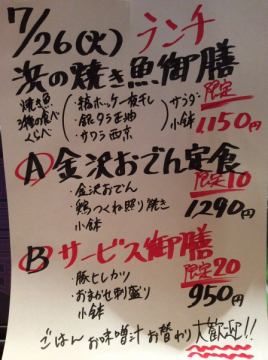 7/26(火) ランチ
浜の焼き魚御膳
焼き魚3種の食べくらべ
・縞ホッケ一夜干し
・銀ダラ醤油
・サワラ西京
サラダ
小鉢
限定
1,150円
A 金沢おでん定食
・金沢おでん
・鶏つくね照り焼き
・小鉢
限定10
1290円
B サービス御膳
・豚ヒレカツ
・おまかせ刺盛り
小鉢
限定20
950円
ごはん お味噌汁 お替わり 大歓迎!!